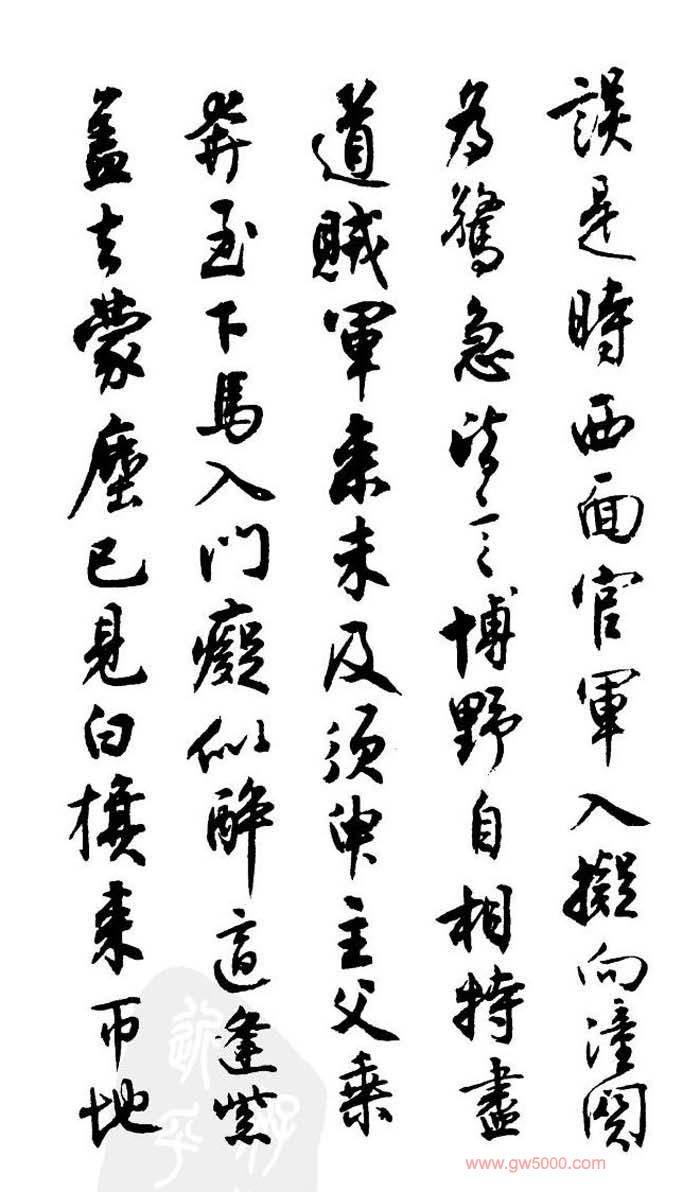 誤是時西面官軍入擬向潼關
為驚急皆言博野自相持盡
道賊軍來未及須臾主父乘
奔至下馬入門癡似醉適逢紫
蓋去蒙塵已見白旗來帀地
www.gw5000.com